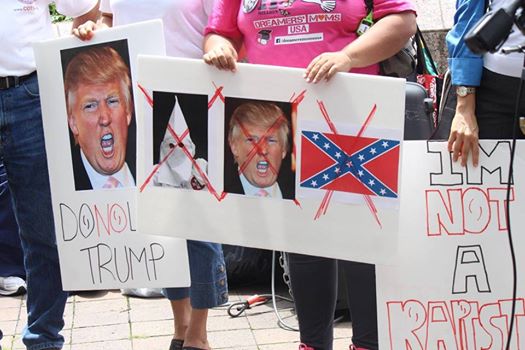 DREAMERS' MOMS
USA
DONO
TRUMP
I'M
NOT
A
RAPIST